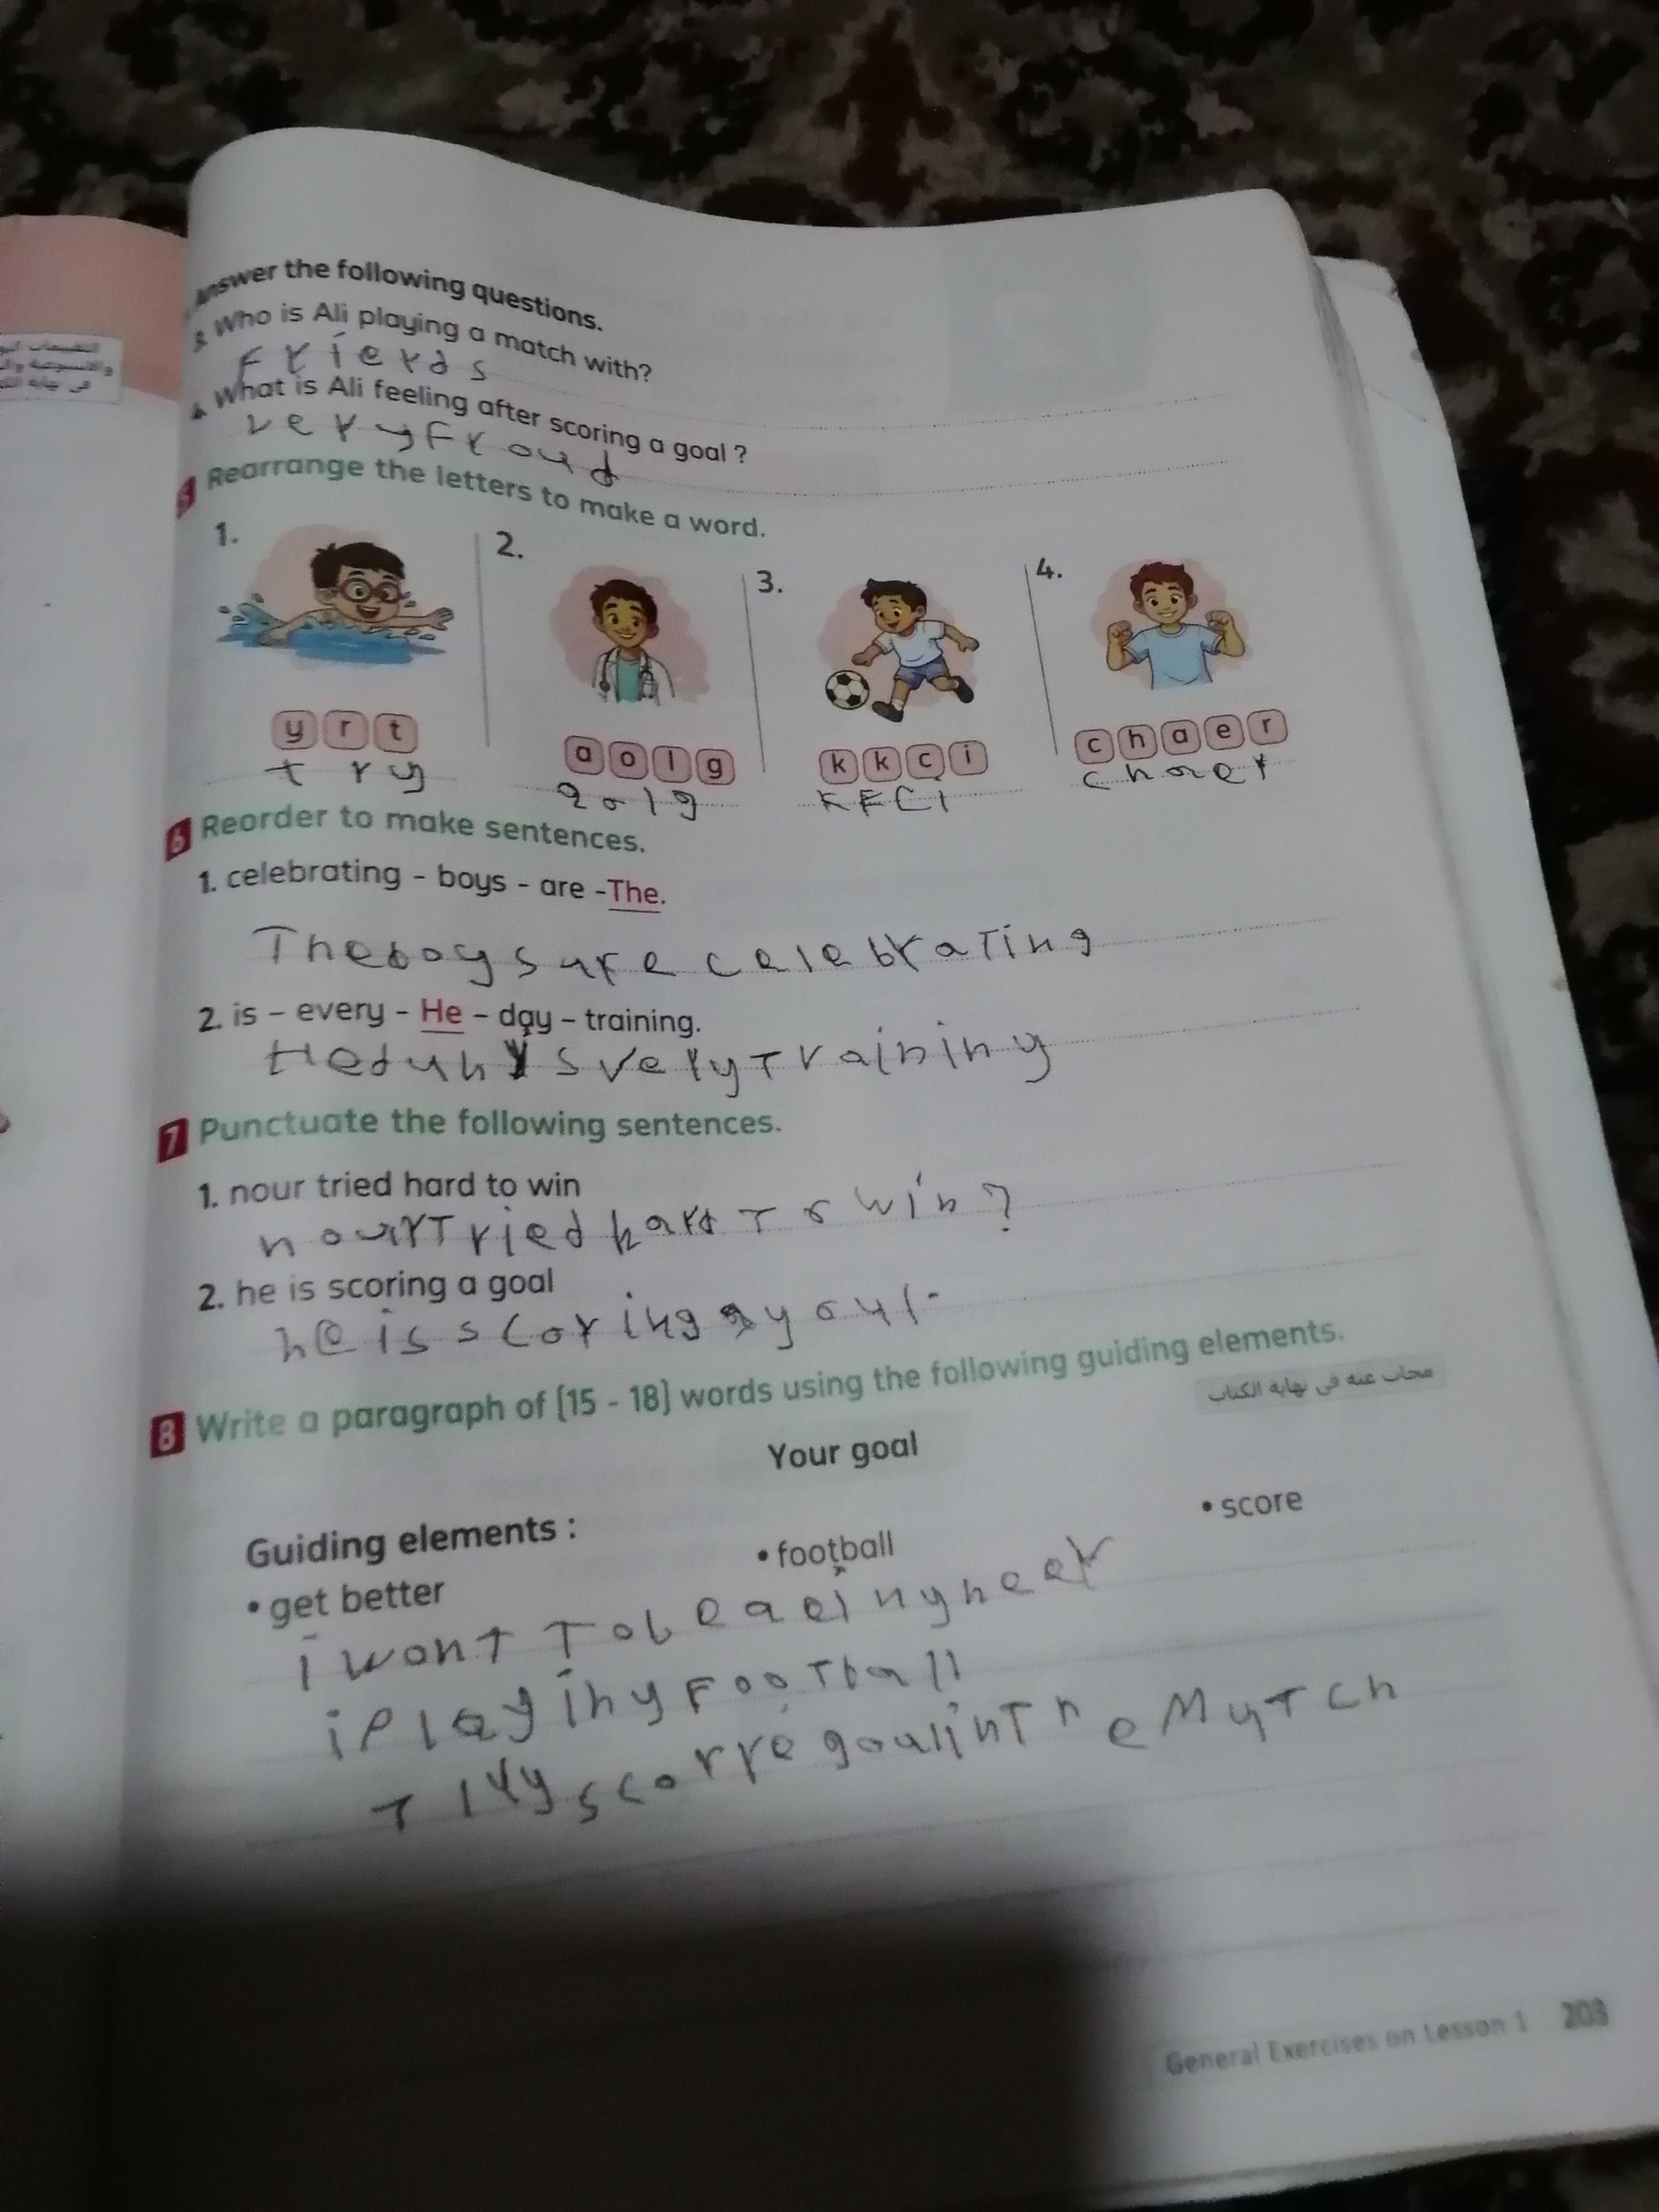 Answer the following questions.
3. Who is Ali playing a match with?
Frierds
4. What is Ali feeling after scoring a goal ?
veryfroud
5 Rearrange the letters to make a word.
1. 2. 3. 4.
y r t a o l g k k c i c h a e r
try golg KFCi chaer
6 Reorder to make sentences.
1. celebrating - boys - are -The.
Theboys are celebraTing
2. is - every - He - day - training.
Training
7 Punctuate the following sentences.
1. nour tried hard to win
nour Tried hard To win?
2. he is scoring a goal
he is scoring
8 Write a paragraph of (15 - 18) words using the following guiding elements.
مجاب عنه فى نهاية الكتاب
Your goal
Guiding elements :
• get better • football • score
i wonT To be
i Playihy FooTball
scorre goal in The MyTch
General Exercises on Lesson 1 203